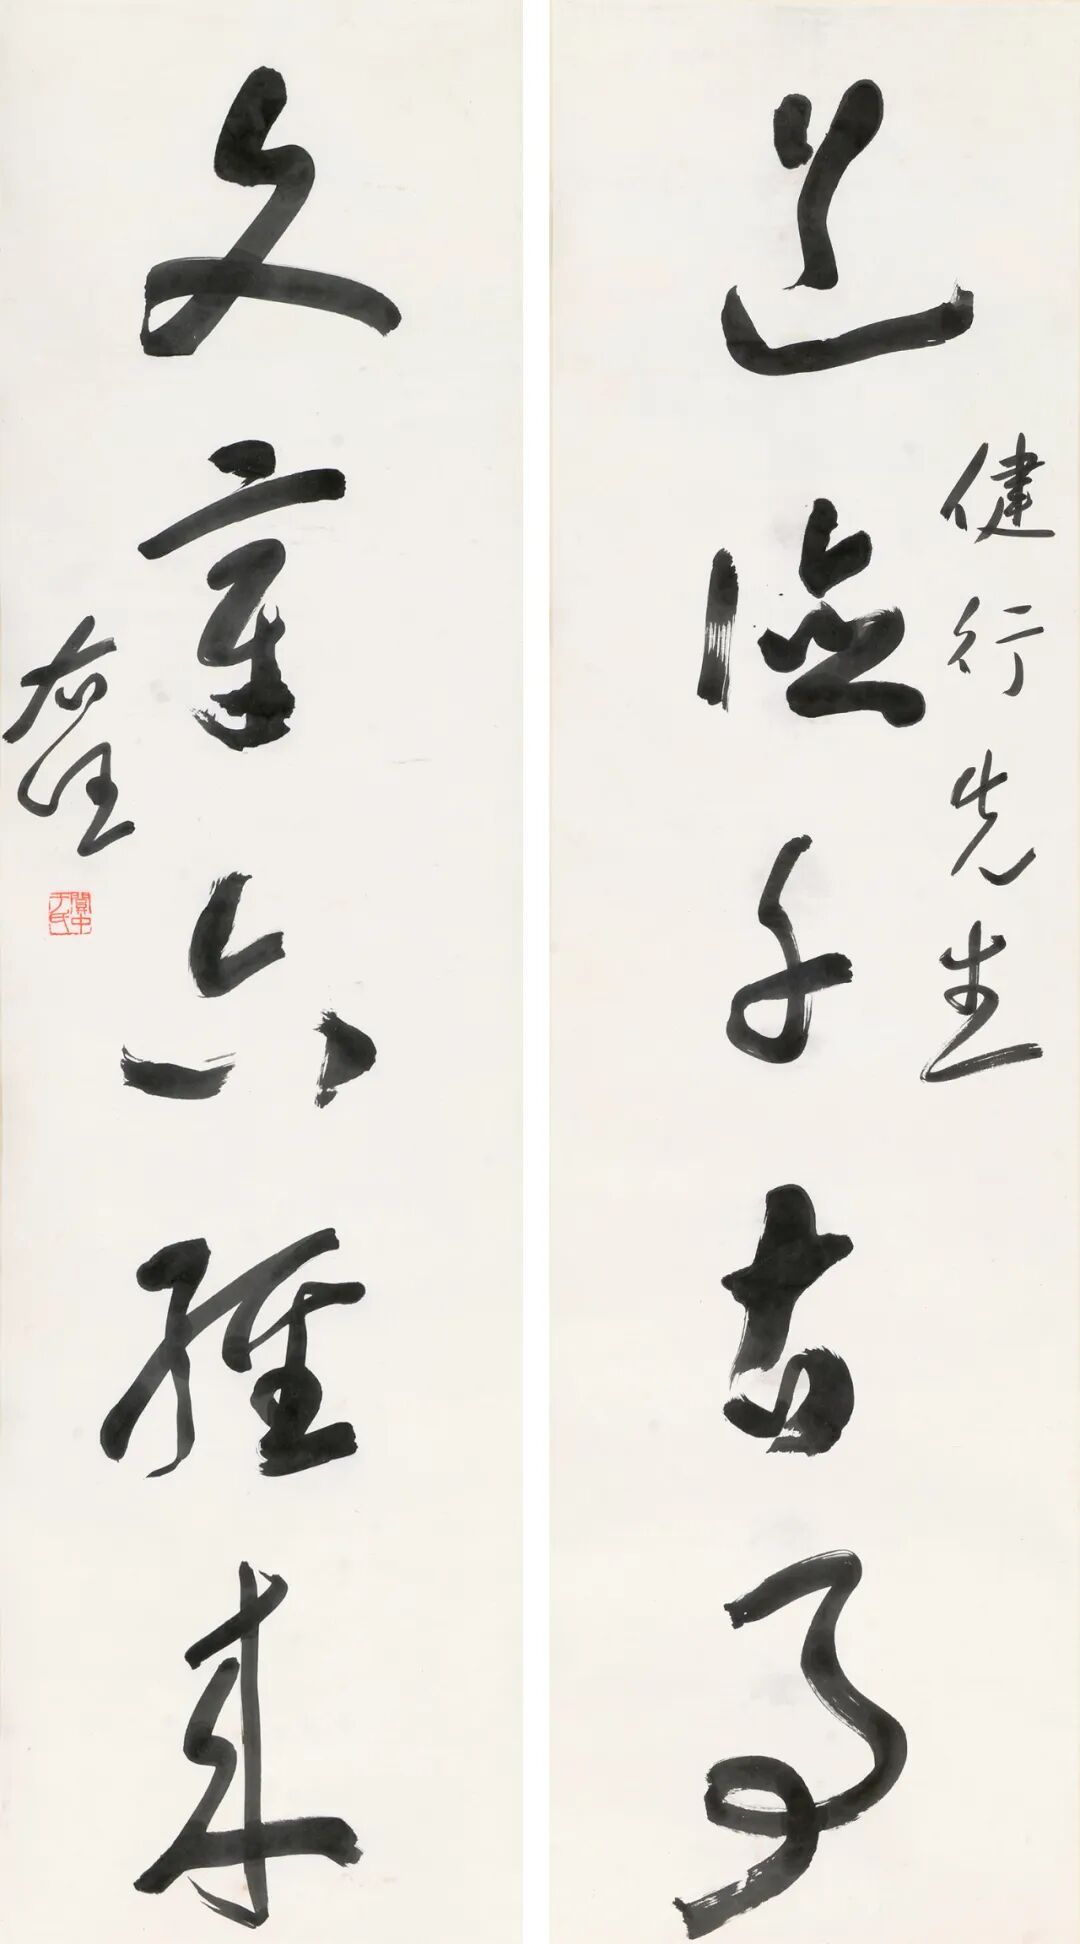 健行先生
道德千古事
文章六經來
右任
關中于氏